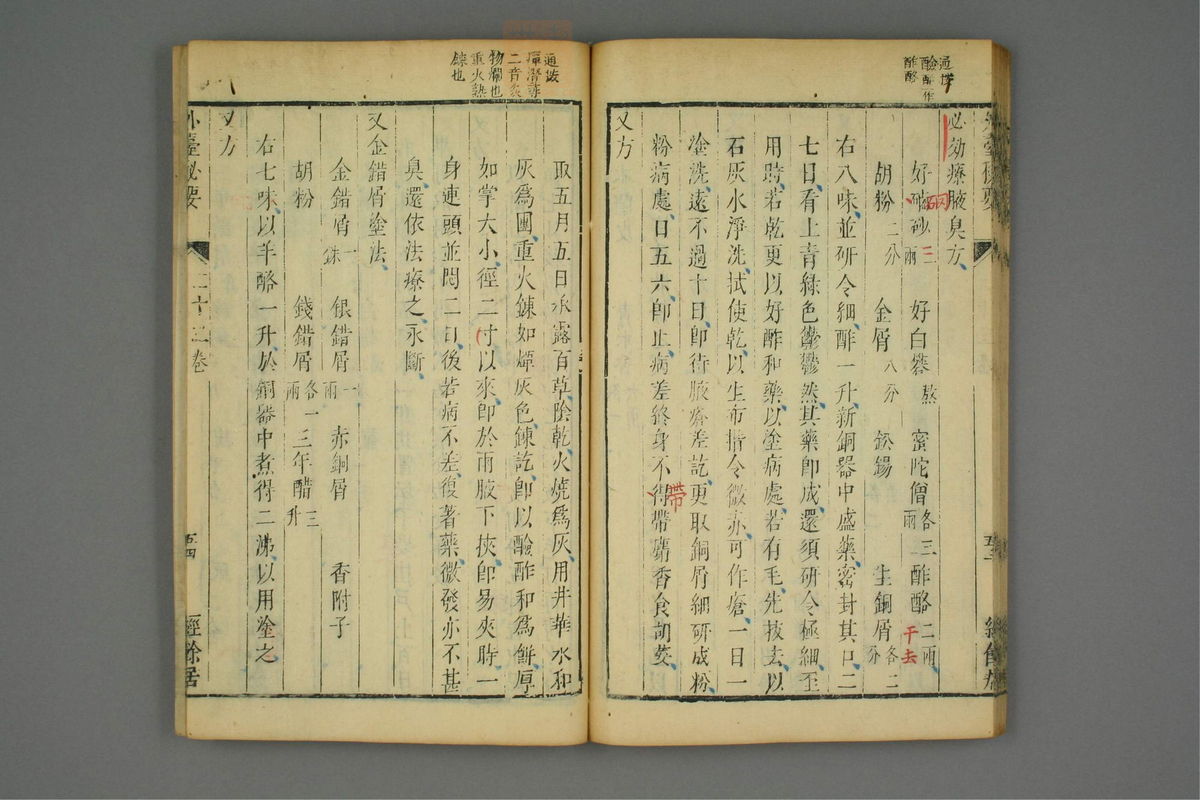 通按
醶酢作
酢酪
外臺祕要
必効療腋臭方
好硇砂二兩 好白礬熬 蜜陀僧各三兩 酢酪二兩
硇
三
干去
胡粉二分 金屑八分 鈆錫 生銅屑各二分
右八味並研令細酢一升新銅器中盛藥密封其口二
七日看上青綠色鬱鬱然其藥即成還須研令極細至
用時若乾更以好酢和藥以塗病處若有毛先拔去以
石灰水淨洗拭使乾以生布揩令微赤可作瘡一日一
塗洗遠不過十日即待腋瘡差訖更取銅屑細研成粉
粉病處日五六即止病差終身不得帶麝香食胡荽
帶
又方
通按
二音炙
物爛也
重火熱
鍊也
取五月五日承露百草陰乾火燒為灰用井華水和
灰為團重火鍊如燸灰色鍊訖即以醶酢和為餅厚
如掌大小徑二寸以來即於兩腋下挾即易夾時一
身連頭並悶二日後若病不差復著藥微發亦不甚
臭還依法療之永斷
又金錯屑塗法
金錯屑一銖 銀錯屑一兩 赤銅屑 香附子
胡粉 錢錯屑各一兩 三年醋三升
右七味以羊酪一升於銅器中煮得二沸以用塗之
又方
外臺祕要 二十三卷 五四 經餘居